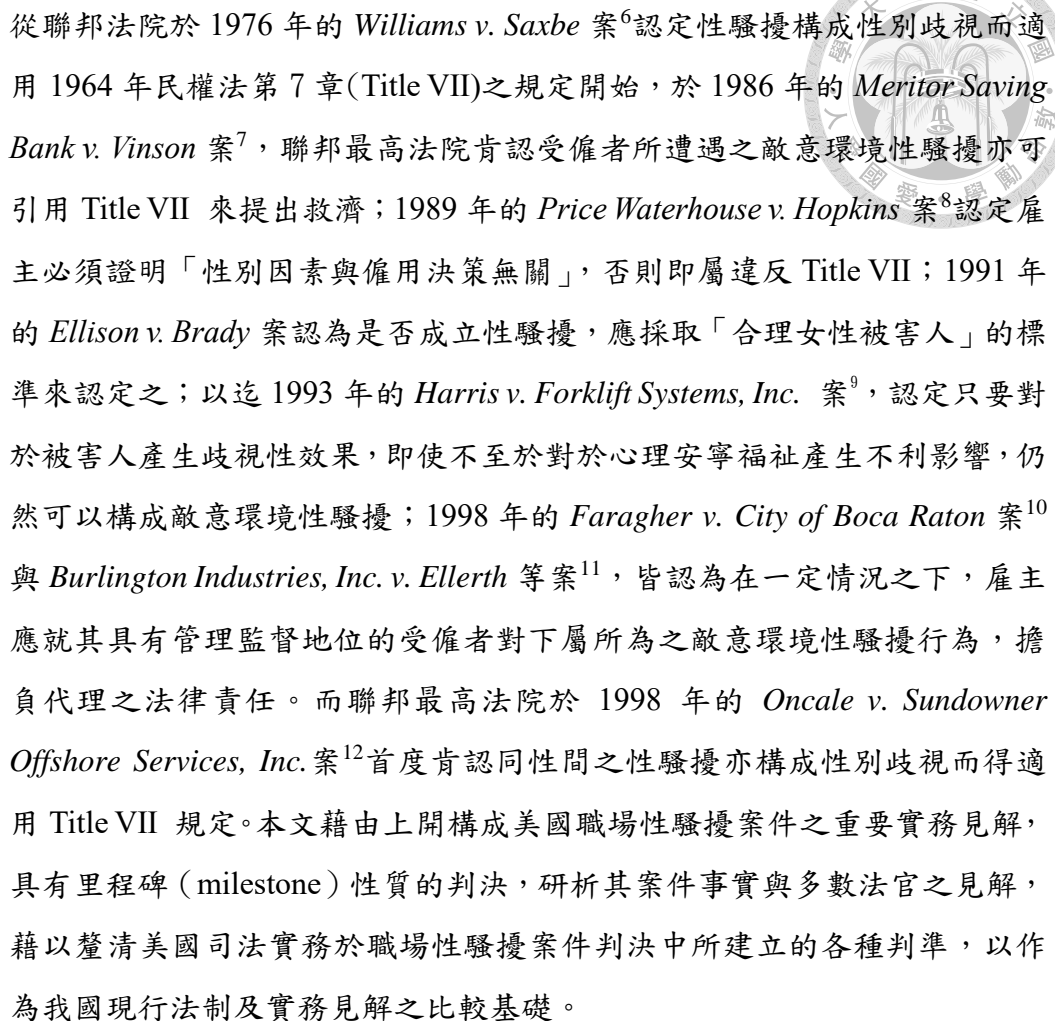 從聯邦法院於 1976 年的 Williams v. Saxbe 案6認定性騷擾構成性別歧視而適
用 1964 年民權法第 7 章(Title VII)之規定開始，於 1986 年的 Meritor Saving
Bank v. Vinson 案7，聯邦最高法院肯認受僱者所遭遇之敵意環境性騷擾亦可
引用 Title VII 來提出救濟；1989 年的 Price Waterhouse v. Hopkins 案8認定雇
主必須證明「性別因素與僱用決策無關」，否則即屬違反 Title VII；1991 年
的 Ellison v. Brady 案認為是否成立性騷擾，應採取「合理女性被害人」的標
準來認定之；以迄 1993 年的 Harris v. Forklift Systems, Inc. 案9，認定只要對
於被害人產生歧視性效果，即使不至於對於心理安寧福祉產生不利影響，仍
然可以構成敵意環境性騷擾；1998 年的 Faragher v. City of Boca Raton 案10
與 Burlington Industries, Inc. v. Ellerth 等案11，皆認為在一定情況之下，雇主
應就其具有管理監督地位的受僱者對下屬所為之敵意環境性騷擾行為，擔
負代理之法律責任。而聯邦最高法院於 1998 年的 Oncale v. Sundowner
Offshore Services, Inc.案12首度肯認同性間之性騷擾亦構成性別歧視而得適
用 Title VII 規定。本文藉由上開構成美國職場性騷擾案件之重要實務見解，
具有里程碑（milestone）性質的判決，研析其案件事實與多數法官之見解，
藉以釐清美國司法實務於職場性騷擾案件判決中所建立的各種判準，以作
為我國現行法制及實務見解之比較基礎。